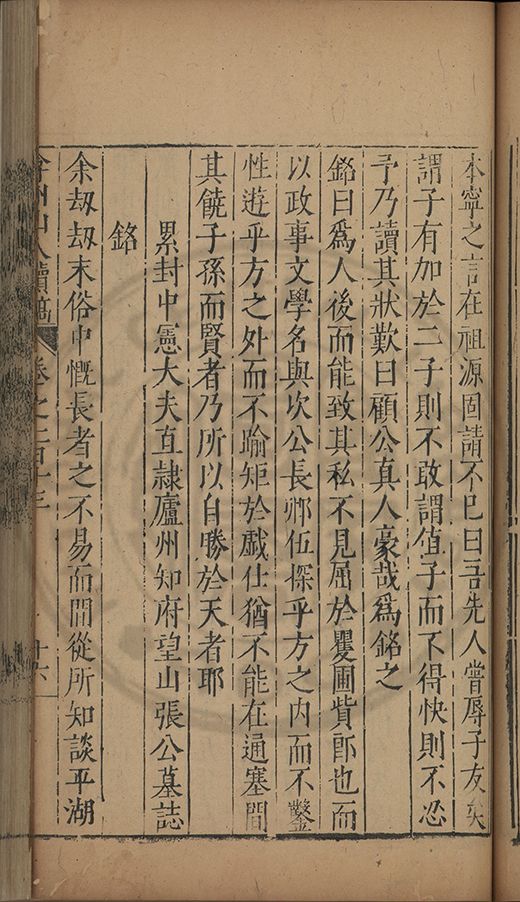 本寧之言在祖源固請不已曰吾先人嘗辱子友矣
謂子有加於二子則不敢謂值子而不得快則不忍
予乃讀其狀歎曰顧公真人豪哉爲銘之
銘曰爲人後而能致其私不見屈於矍圃貲郎也而
以政事文學名與次公長卿伍探乎方之内而不鑿
性遊乎方之外而不踰矩於戲仕猶不能在通塞間
其饒子孫而賢者乃所以自勝於天者耶
累封中憲大夫直隸廬州知府望山張公墓誌
銘
余刼刼末俗中慨長者之不易而間從所知談平湖
弇州山人續稿 卷之一百十三 十六